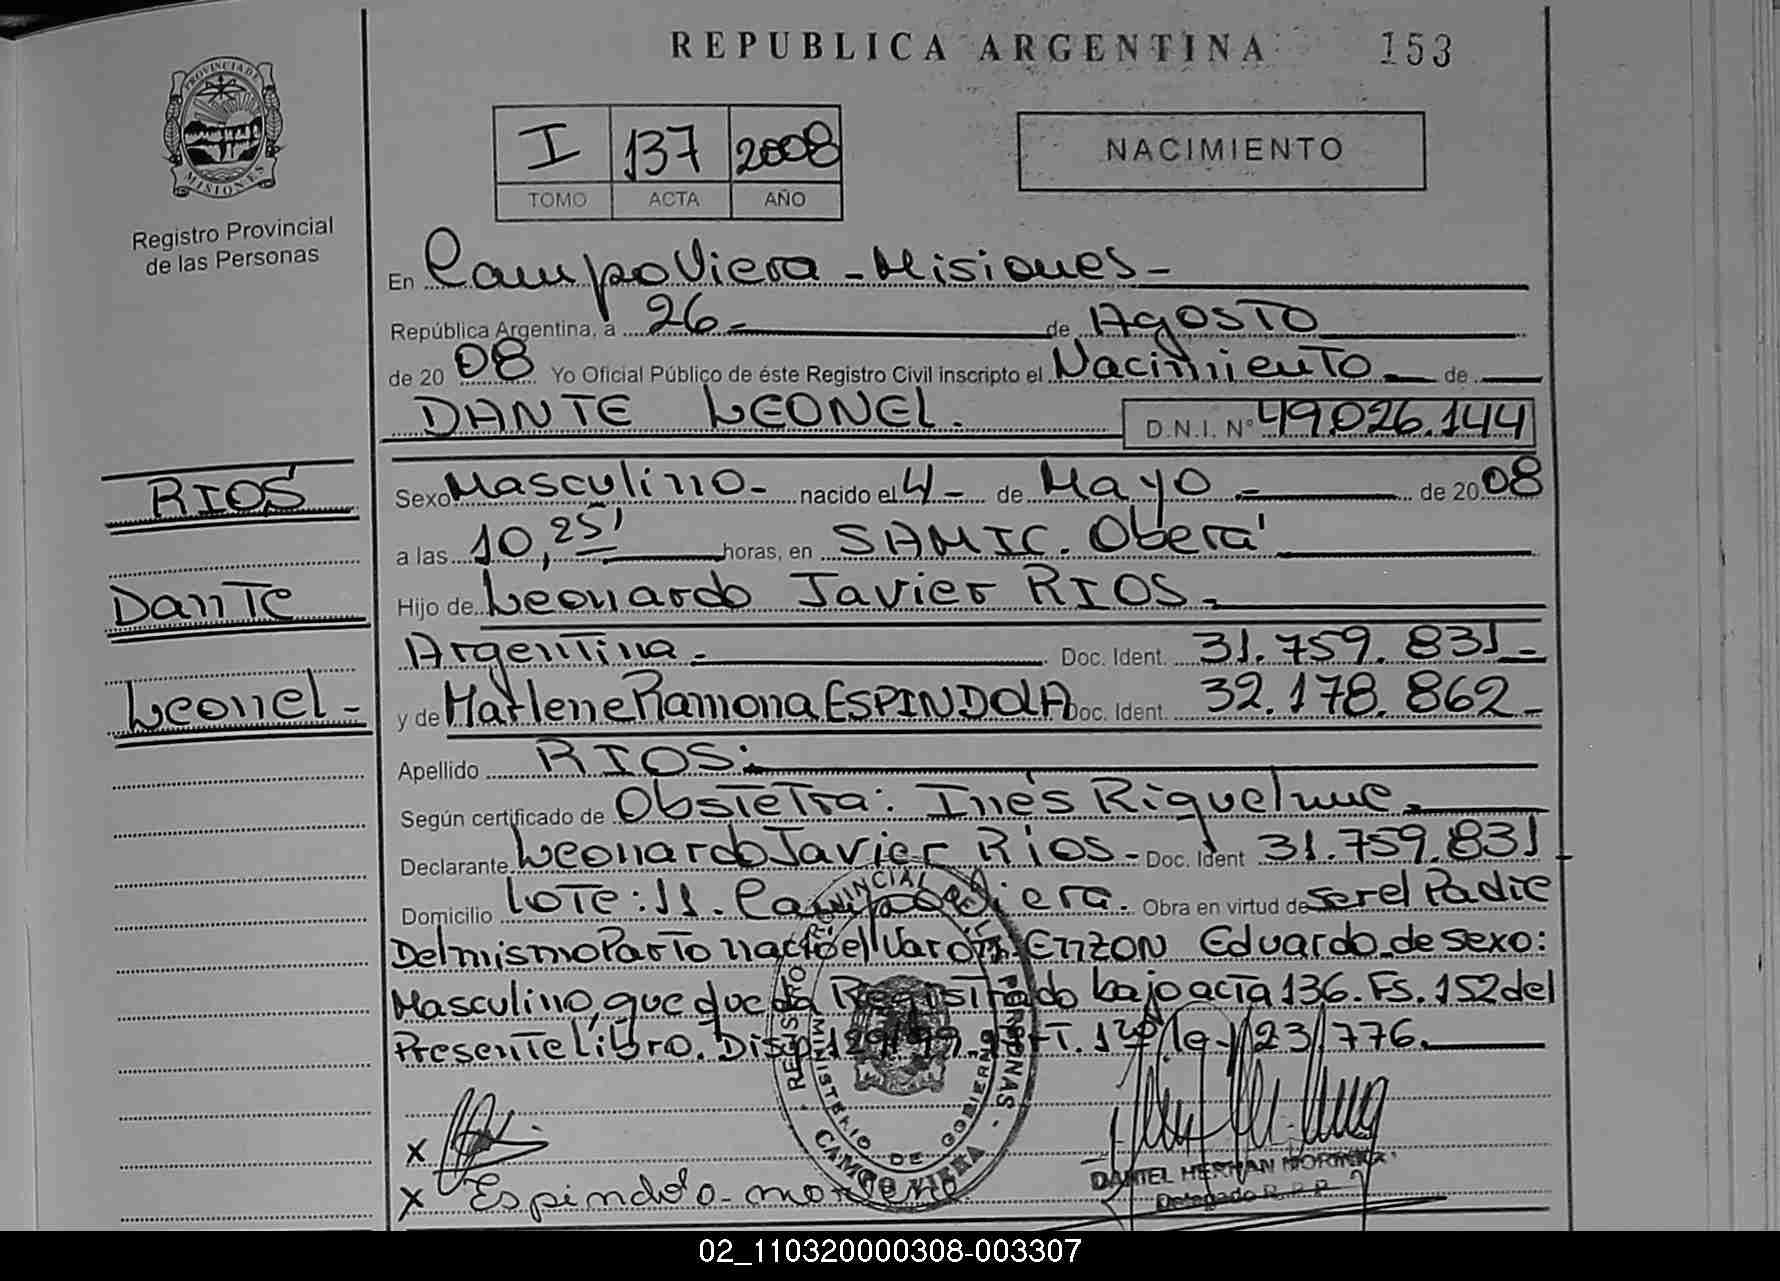 REPUBLICA ARGENTINA 153
PROVINCIA DE
MISIONES
Registro Provincial
de las Personas
I 137 2008
TOMO ACTA AÑO
NACIMIENTO
En Campo Viera - Misiones -
República Argentina, a 26 - de Agosto
de 20 08 Yo Oficial Público de éste Registro Civil inscripto el Nacimiento - de
DANTE LEONEL. D.N.I. N° 49.026.144
RIOS
Dante
Leonel -
Sexo Masculino - nacido el 4 - de Mayo - de 20 08
a las 10,25' horas, en SAMIC. Oberá
Hijo de Leonardo Javier RIOS -
Argentina - Doc. Ident. 31.759.831 -
y de Marlene Ramona ESPINDOLA Doc. Ident. 32.178.862 -
Apellido RIOS.
Según certificado de Obstetra: Inés Riquelme -
Declarante Leonardo Javier Rios - Doc. Ident 31.759.831
Domicilio Lote: 11. Campo Viera. Obra en virtud de ser el Padre
Del mismo Parto nació el Varón ENZON Eduardo de sexo:
Masculino, que queda Registrado bajo acta 136. Fs. 152 del
Presente libro. Disp. 129/99.
REGISTRO PROVINCIAL DE LAS PERSONAS
MINISTERIO DE GOBIERNO
CAMPO VIERA
x
x Espindola - marlene
DANIEL HERNAN
Delegado R.P.P.
02_110320000308-003307